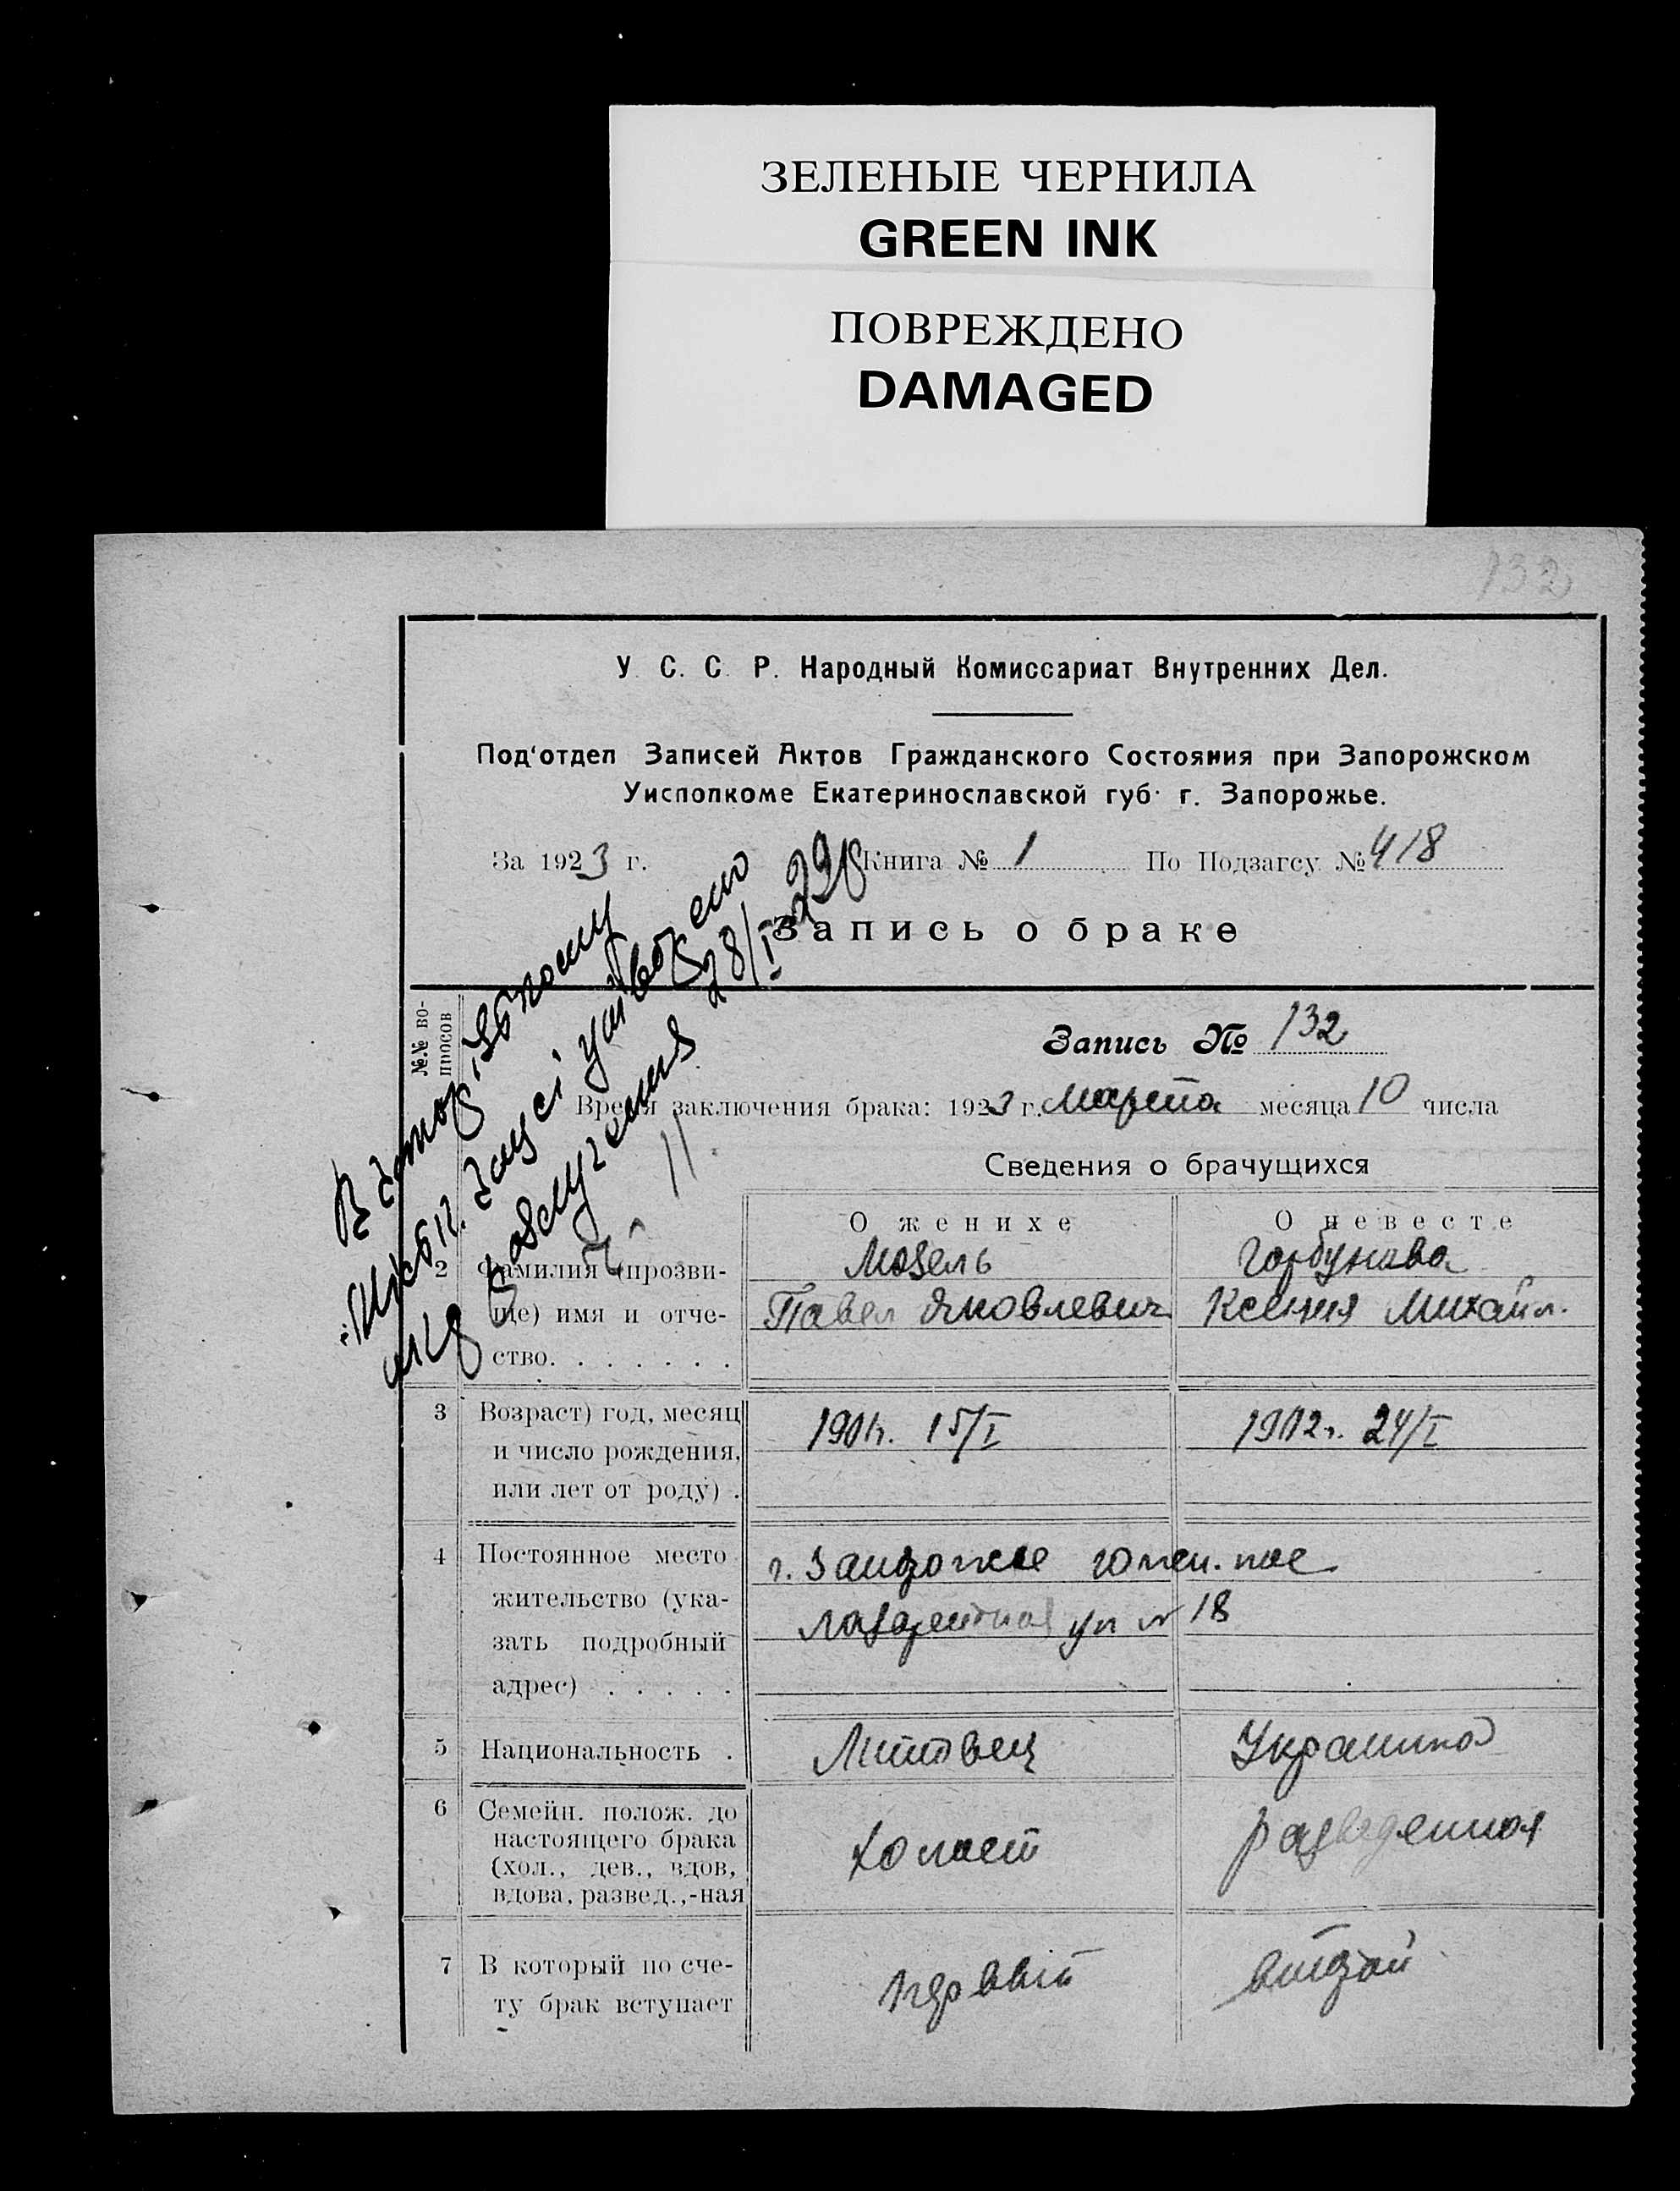 ЗЕЛЕНЫЕ ЧЕРНИЛА
GREEN INK
ПОВРЕЖДЕНО
DAMAGED
132
У. С. С. Р. Народный Комиссариат Внутренних Дел.
Под'отдел Записей Актов Гражданского Состояния при Запорожском
Уисполкоме Екатеринославской губ. г. Запорожье.
За 1923 г. Книга № 1 По Подзагсу № 418
Запись о браке
28/I
№№ вопросов
Запись № 132
Время заключения брака: 1923 г. Марта месяца 10 числа
Сведения о брачущихся
О женихе О невесте
2 Фамилия (прозви- Мозель Горбунова
ще) имя и отче- Павел Яковлевич Ксения Михайл.
ство. . . . . . .
3 Возраст) год, месяц 15/I 24/I
и число рождения,
или лет от роду) .
4 Постоянное место г. Запорожье
жительство (ука- ул № 18
зать подробный
адрес) . . . . .
5 Национальность . Литвец Украинка
6 Семейн. полож. до
настоящего брака холост разведенная
(хол., дев., вдов,
вдова, развед.,-ная
7 В который по сче- первый второй
ту брак вступает